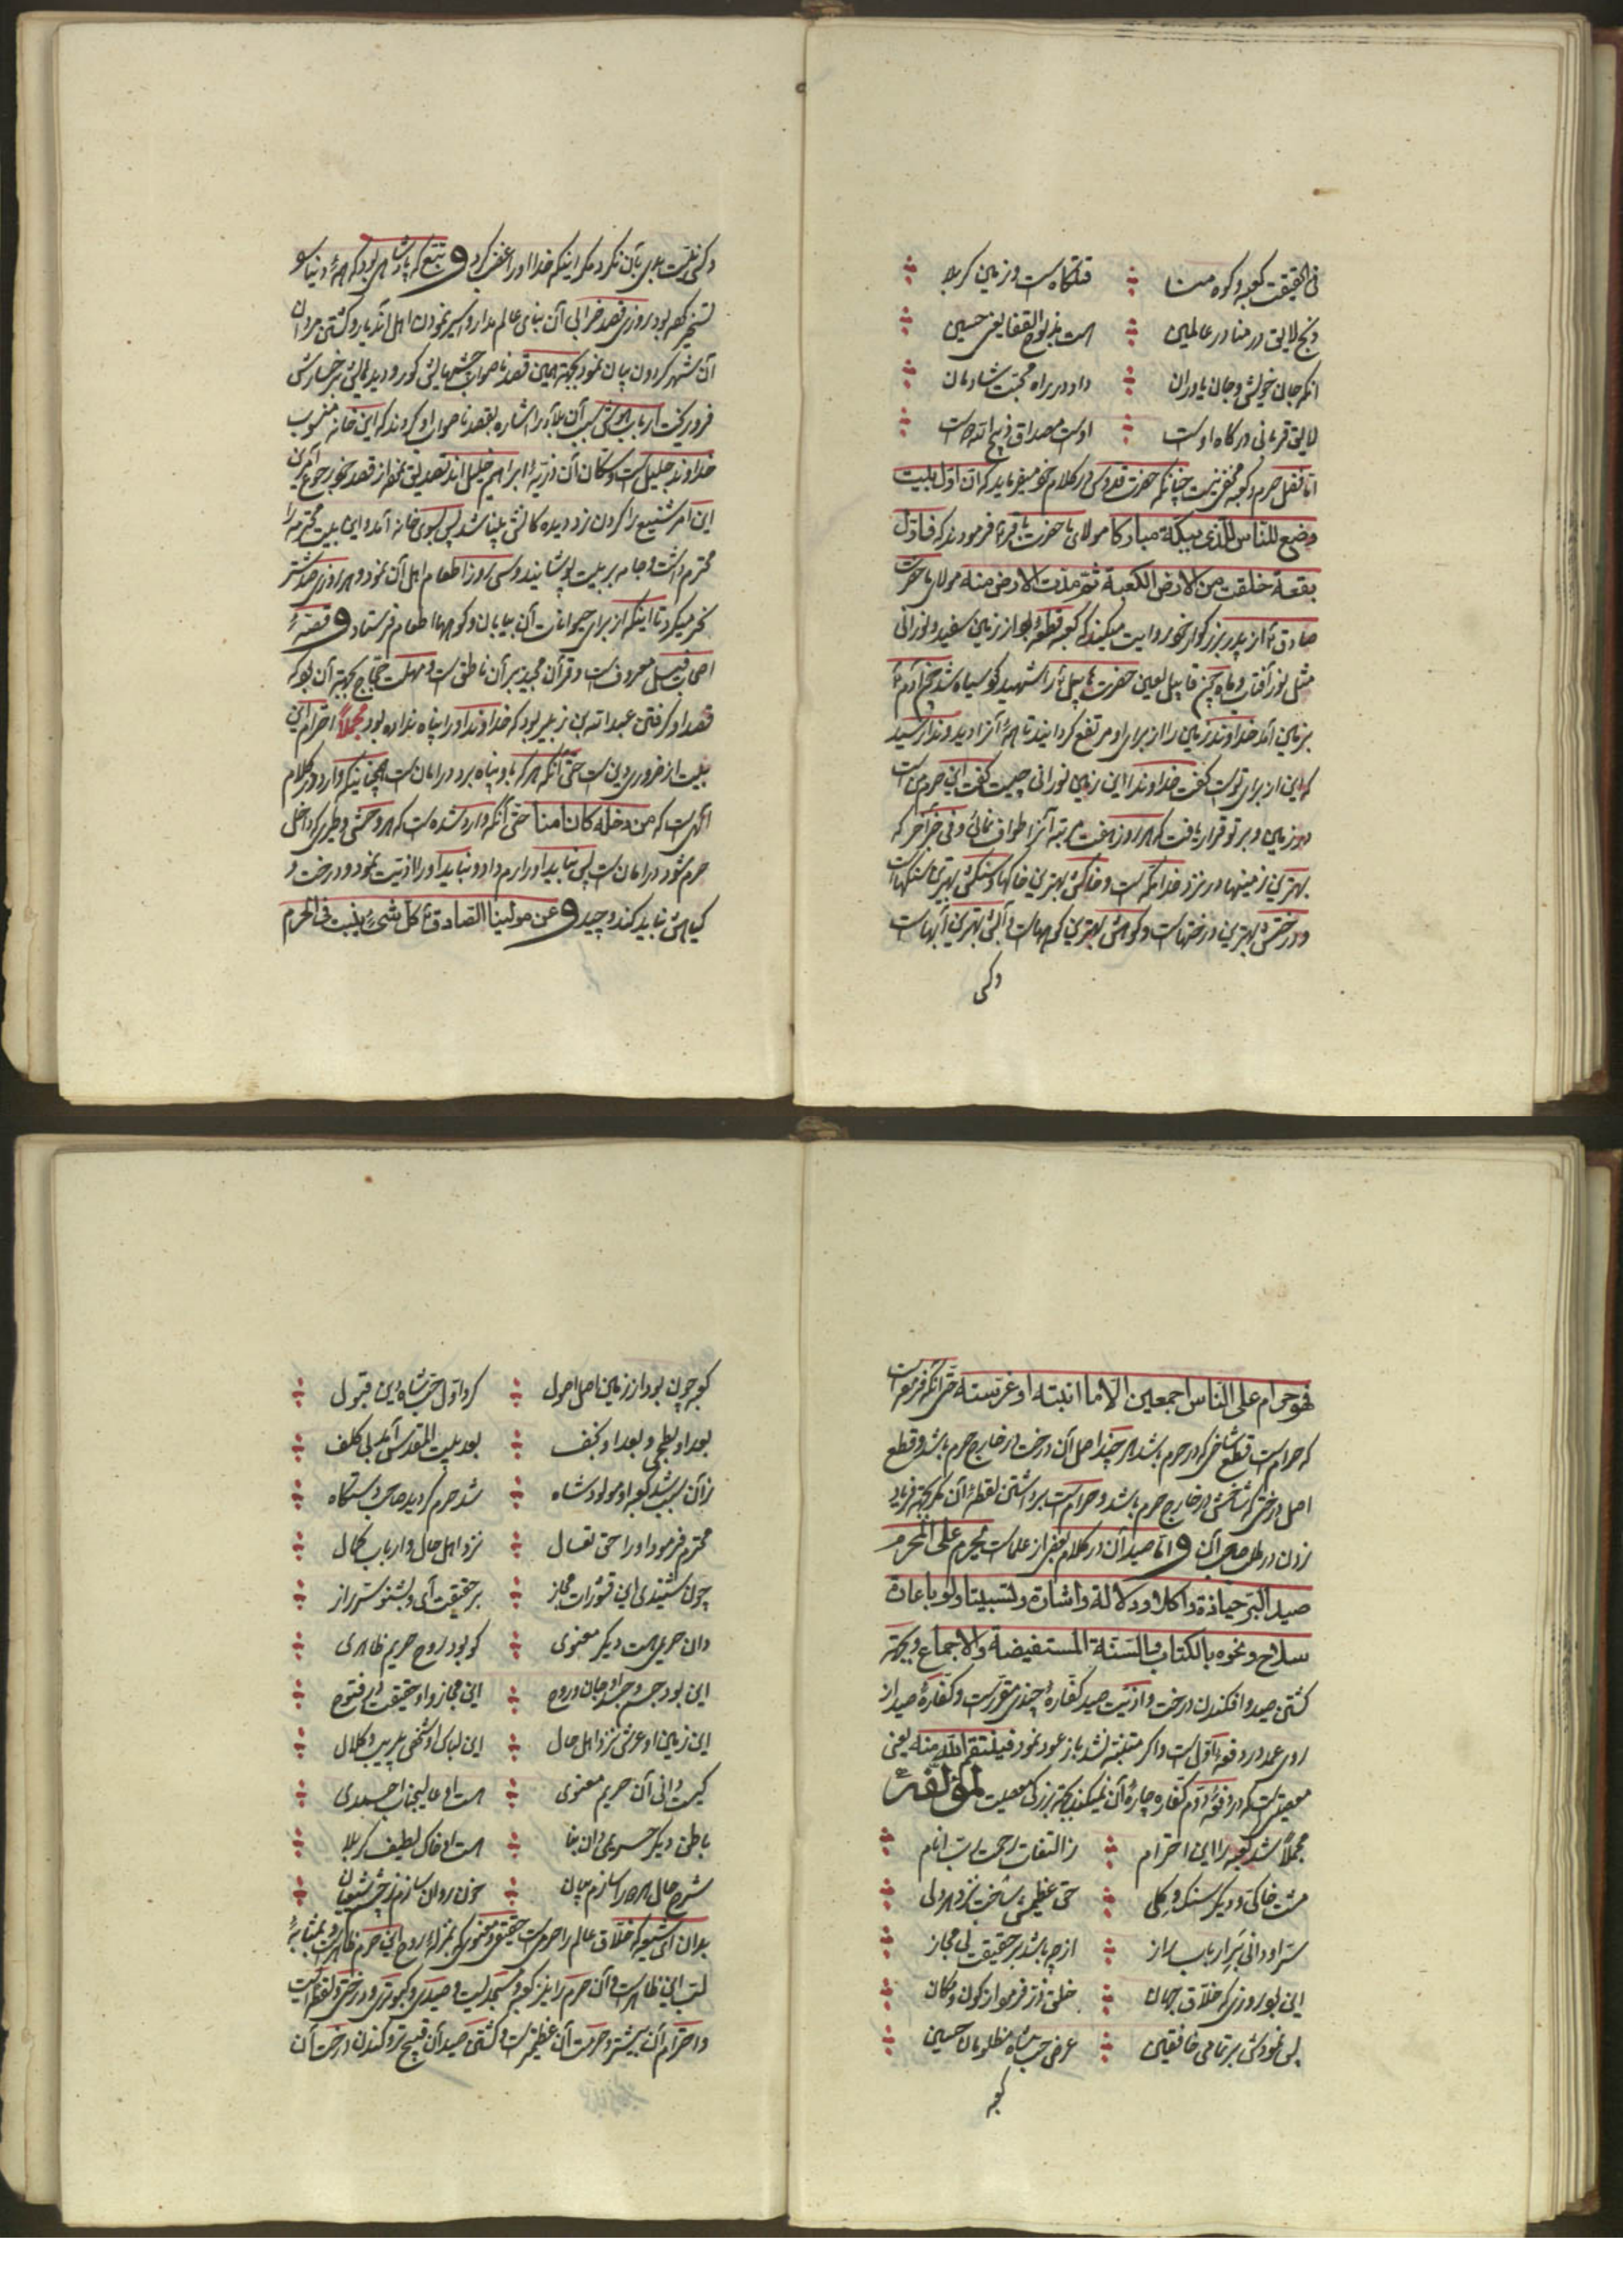 فی الحقیقت کعبه و کوه منا قتلگاهست و زمین کربلا
ذبح لایق در منا در عالمین هست مذبوح القفا یعنی حسین
انکه جان خویش و جان یاوران داد در راه محبت شادمان
لایق قربانی درگاه اوست اوست مصداق ذبیح الله دوست
اما فضل حرم و کعبه مخفی نیست چنانکه حضرت قدوسی در کلام خود میفرماید که ان اول بیت
وضع للناس للذی ببکة مبارکا مولای ما حضرت باقر فرمودند که فاول
بقعة خلقت من الارض الکعبة ثم مدت الارض منه مولای ما حضرت
صادق از پدر بزرگوار خود روایت میکند که کعبه قطعه بود از زمین سفید و نورانی
مثل نور آفتاب و ماه چون قابیل لعین حضرت هابیل را شهید کرد سیاه شد چون آدم
بزمین آمد خداوند زمین را از برای او مرتفع گردانید تا همه آنرا دید و ندا رسید
که این از برای توست گفت خداوندا این زمین نورانی چیست گفت این حرم من است
در زمین و بر تو قرار یافت که هر روز هفت مرتبه آنرا طواف نمائی و فی خبر آخر که
بهترین زمینها در نزد خدا مکه است و خاکش بهترین خاکها و سنگش بهترین سنگهاست
و درختش بهترین درختهاست و کوهش بهترین کوههاست و آبش بهترین آبهاست
وکسی
وکسی نیت بدی بآن نکرد مگر اینکه خدا او را غضب کرد و تبع که پادشاهی بود که همه دنیا را
تسخیر کرده بود روزی قصد خرابی آن بنای عالم مدار و اسیر نمودن اهل آندیار و کشتن مردان
آن شهر کردون بیان نمود بجهة همین قصد ناصواب چشمهایش کور و دیده مالش بر رخسارش
فرو ریخت ارباب هوش سبب آن بلا را اشاره بقصد ناصواب او کردند که این خانه منسوب
خداوند جلیل است و سکان آن ذریه ابراهیم خلیل اند تصدیق نموده از قصد خود رجوع
این امر شنیع را کردن زد دیده کانش بینا شد پس بسوی خانه آمد و این بیت محترمه را
محترم داشت و جامه بر بیت پوشانید و سی روز اطعام اهل آن نمود و هر روزی صد شتر
نحر میکرد تا اینکه از برای حیوانات آن بیابان و کوهها اطعام فرستاد و قصه
اصحاب فیل معروفست و قرآن مجید بر آن ناطق است و مهلت حجاج بجهة آن بود که
قصد او گرفتن عبد الله بن زبیر بود که خداوند او را پناه نداده بود مجملا احترام این
بیت از ضروری دین است حتی آنکه هر که باو پناه برد در امانست همچنانیکه وارد در کلام
الهی است که من دخله کان امنا حتی آنکه وارد شده است که هر وحشی و طیری که داخل
حرم شود در امان است پس نباید او را رم داد و نباید او را اذیت نمود و درخت و
گیاهش نباید کند و چید و عن مولینا الصادق کل شیء ینبت فی الحرم
فهو حرام علی الناس اجمعین الا ما انبته او غرسته حتی آنکه فرموده است
که حرام است قطع شاخی که در حرم باشد هر چند اصل آن درخت در خارج حرم باشد و قطع
اصل درختی که شاخش در خارج حرم باشد و حرام است برداشتن لقطه آن مگر بجهة فریاد
زدن در طلب صاحب آن و اما صید آن در کلام بعضی از علماست یحرم علی المحرم
صید البر حیازة و اکلا و دلالة و اشارة و تسبیبا و لو باعارة
سلاح و نحوه بالکتاب و السنة المستفیضة و الاجماع و بجهة
کشتن صید و افکندن درخت و اذیت صید کفاره چندی مقرر است و کفاره صید از
روی عمد در دفعه اول است و اگر متنبه نشد باز عود نمود فینتقم الله منه یعنی
معصیتی است که در دفعه دوم کفاره چاره آن نمیکند بجهة بزرگی معصیت لمؤلفه
مجملا شد کعبه را این احترام ز التفات رحمت رب انام
مشت خاکی و دیگر سنگ و گلی حق عظیمش ساخت نزد هر دلی
سر او دانی بر ارباب راز از چه باشد بر حقیقت بی مجاز
این بود روزی که خلاق جهان خلق ذر فرمود از کون و مکان
پس نمودش بر تمامی خافقین عرض حب شاه مظلومان حسین
کعبه
کعبه چون بود از زمین اصل اصول کرد اول حب شاه دین قبول
بعد او بطحی و بعد او نجف بعد بیت المقدس آمد بی کلف
زآن سبب شد کعبه او مولود شاه شد حرم گردید صاحب دستگاه
محترم فرمود او را حق تعال نزد اهل حال و ارباب کمال
چون شنیدی این قشورات مجاز بر حقیقت آی و بشنو سر راز
دان حریمی هست دیگر معنوی کو بود روح حریم ظاهری
این بود جسم و جسد او جان و روح این مجاز و او حقیقت در فتوح
این زمین او عرش نزد اهل حال این لباس او شخص بیریب و کلال
کیست دانی آن حریم معنوی هست او عالیجناب احمدی
باطن دیگر حریمی دان بنا هست او خاک لطیف کربلا
شرح حال هر دو را سازم بیان خون روان سازم ز چشم شیعیان
بدان ای شیعه که خلاق عالم را حرمی است حقیقی و معنوی که بمنزله روح این حرم ظاهر است و بمثابه
لب این ظاهر است و آن حرم را نیز کعبه و مسجدیست و صیدی و کبوتری و درختی و لقطه ایست
و احترام آن بیشتر و حرمت آن عظیمتر است و کشتن صید آن قبیح تر و کندن درخت آن